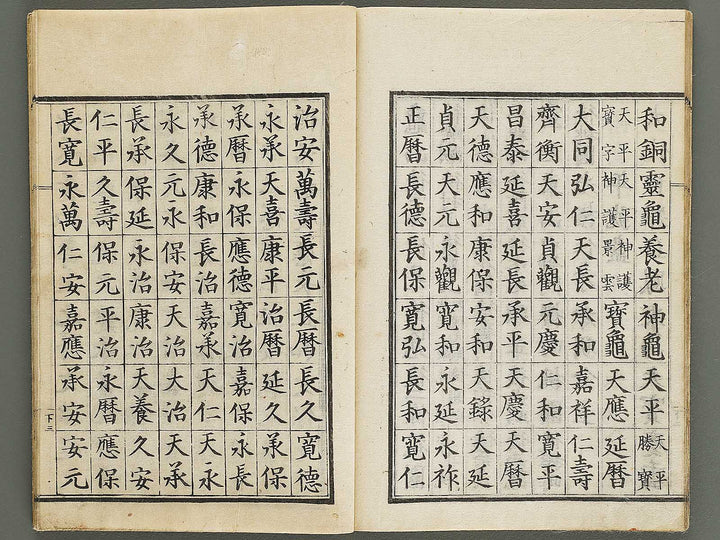 和銅靈龜養老神龜天平天平勝寶
天平寶字天平神護神護景雲寶龜天應延暦
大同弘仁天長承和嘉祥仁壽
齊衡天安貞觀元慶仁和寬平
昌泰延喜延長承平天慶天暦
天德應和康保安和天錄天延
貞元天元永觀寬和永延永祚
正暦長德長保寬弘長和寬仁
治安萬壽長元長暦長久寬德
永承天喜康平治暦延久承保
承暦永保應德寬治嘉保永長
承德康和長治嘉承天仁天永
永久元永保安天治大治天承
長承保延永治康治天養久安
仁平久壽保元平治永暦應保
長寬永萬仁安嘉應承安安元
下三